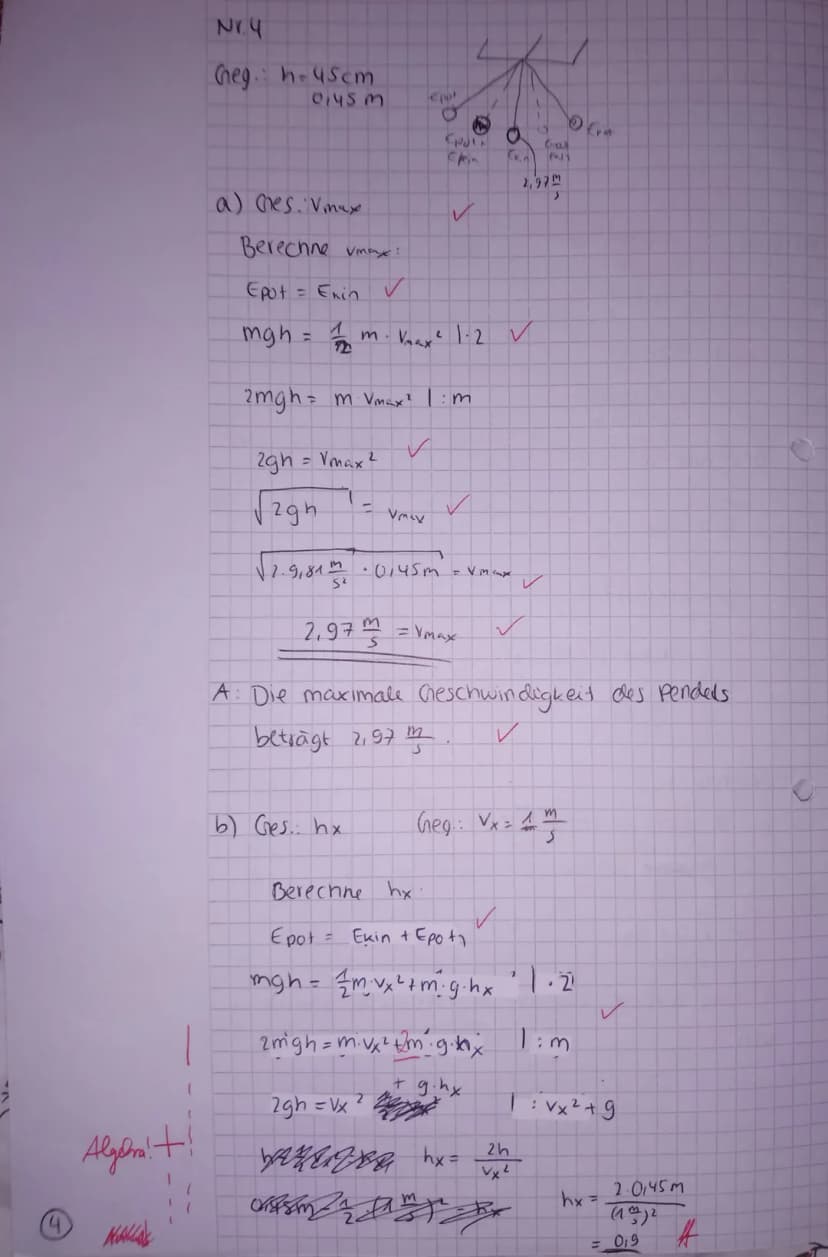 Nr.4
Geg.: h = 45cm
0,45 m
Epot
Epot
Epot+
Ekin
Ekin
2,97 m/s
a) Ges.: Vmax
Berechne vmax:
Epot = Ekin
mgh = 1/2 m · Vmax² |·2
2mgh = m·Vmax² | : m
2gh = Vmax²
√2gh = Vmax
√2·9,81 m/s² · 0,45m = Vmax
2,97 m/s = Vmax
A: Die maximale Geschwindigkeit des Pendels
beträgt 2,97 m/s.
b) Ges.: hx Geg.: Vx = 1 m/s
Berechne hx:
Epot = Ekin + Epot1
mgh = 1/2 m·Vx² + m·g·hx | · 2
2mgh = m·Vx² + 2m·g·hx | : m
2gh = Vx² + g·hx | : Vx² + g
Algebra!
hx = 2h/Vx²
hx = 2·0,45m/(1 m/s)²
= 0,9
A
4